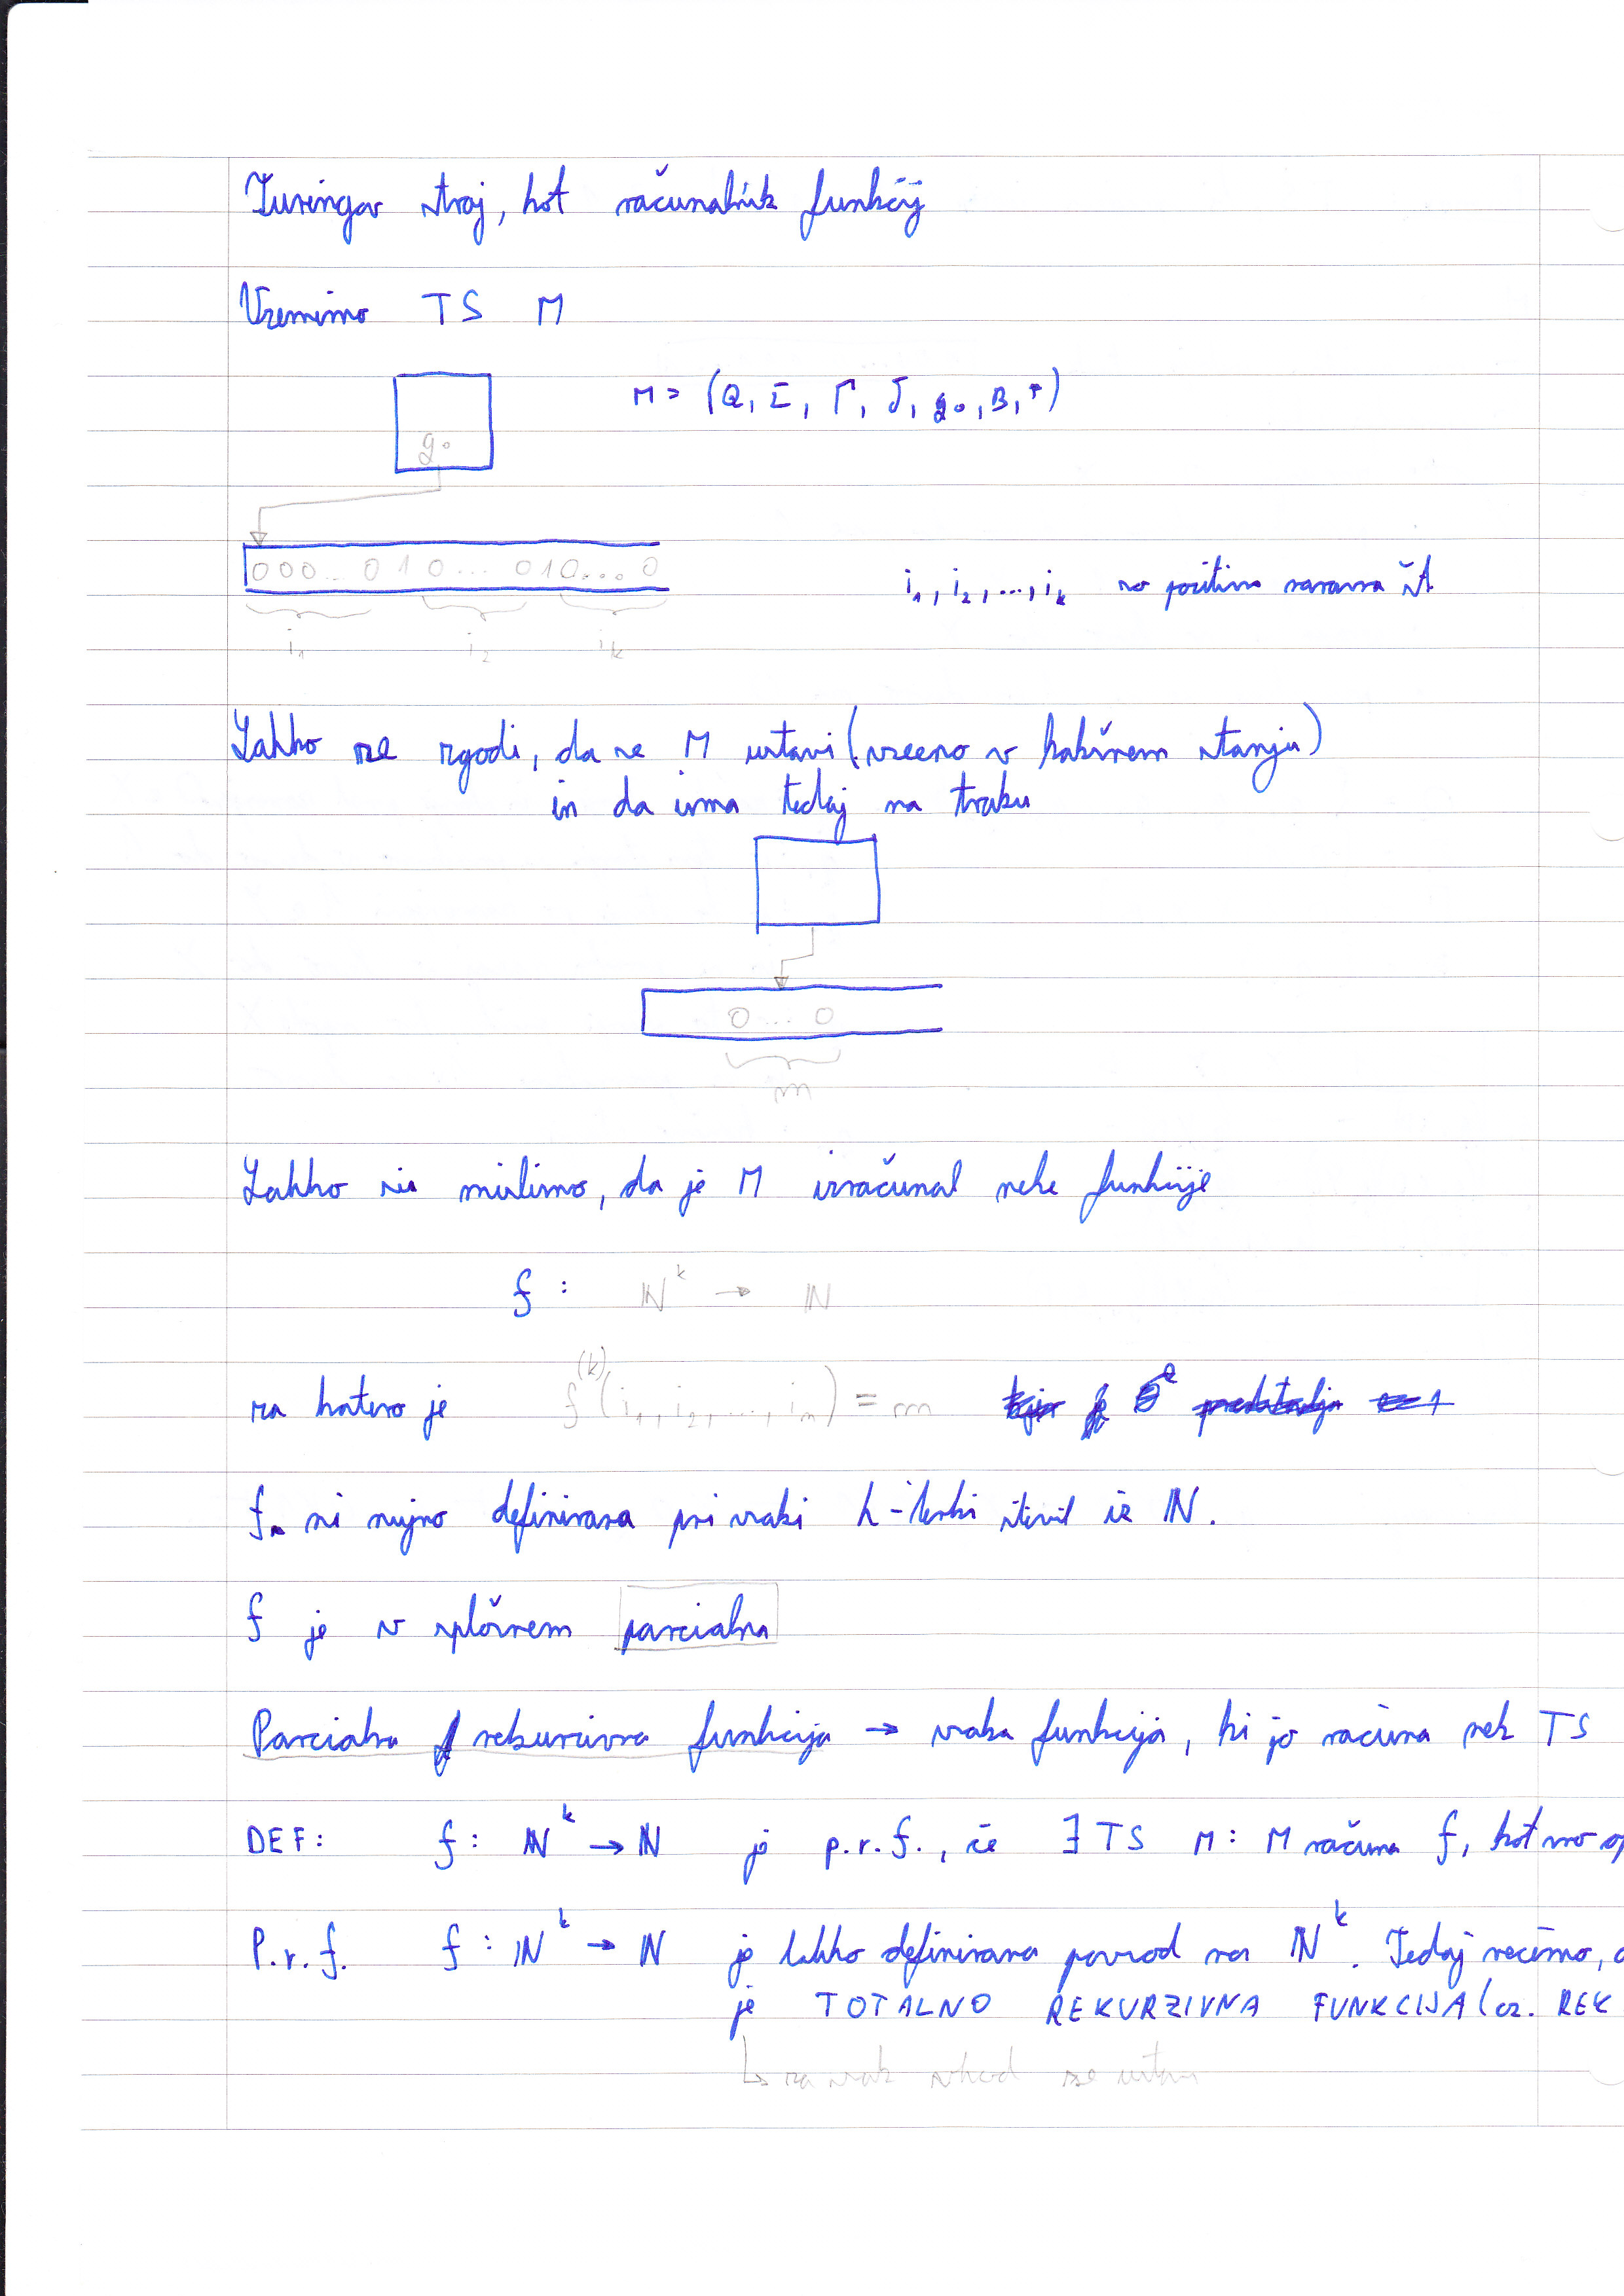 Turingov stroj, kot računalnik funkcij
Vzemimo TS M
M = (Q, Σ, Γ, δ, q₀, B, F)
q₀
000.. 010... 010... 0
i₁, i₂, ..., iₖ so pozitivna naravna št.
i₁ i₂ iₖ
Lahko se zgodi, da se M ustavi (vseeno v kakšnem stanju)
in da ima tedaj na traku
0 ... 0
m
Lahko si mislimo, da je M izračunal neke funkcije
f : ℕᵏ → ℕ
za katero je f⁽ᵏ⁾(i₁, i₂, ..., iₙ) = m
f ni nujno definirana pri vsaki k-terki števil iz ℕ.
f je v splošnem parcialna
Parcialna rekurzivna funkcija → vsaka funkcija, ki jo računa nek TS
DEF: f : ℕᵏ → ℕ je p.r.f., če ∃ TS M : M računa f, kot smo op
P.r.f. f : ℕᵏ → ℕ je lahko definirana povsod na ℕᵏ. Tedaj rečemo, d
je TOTALNO REKURZIVNA FUNKCIJA (oz. REK
↳ za vsak vhod se ustavi